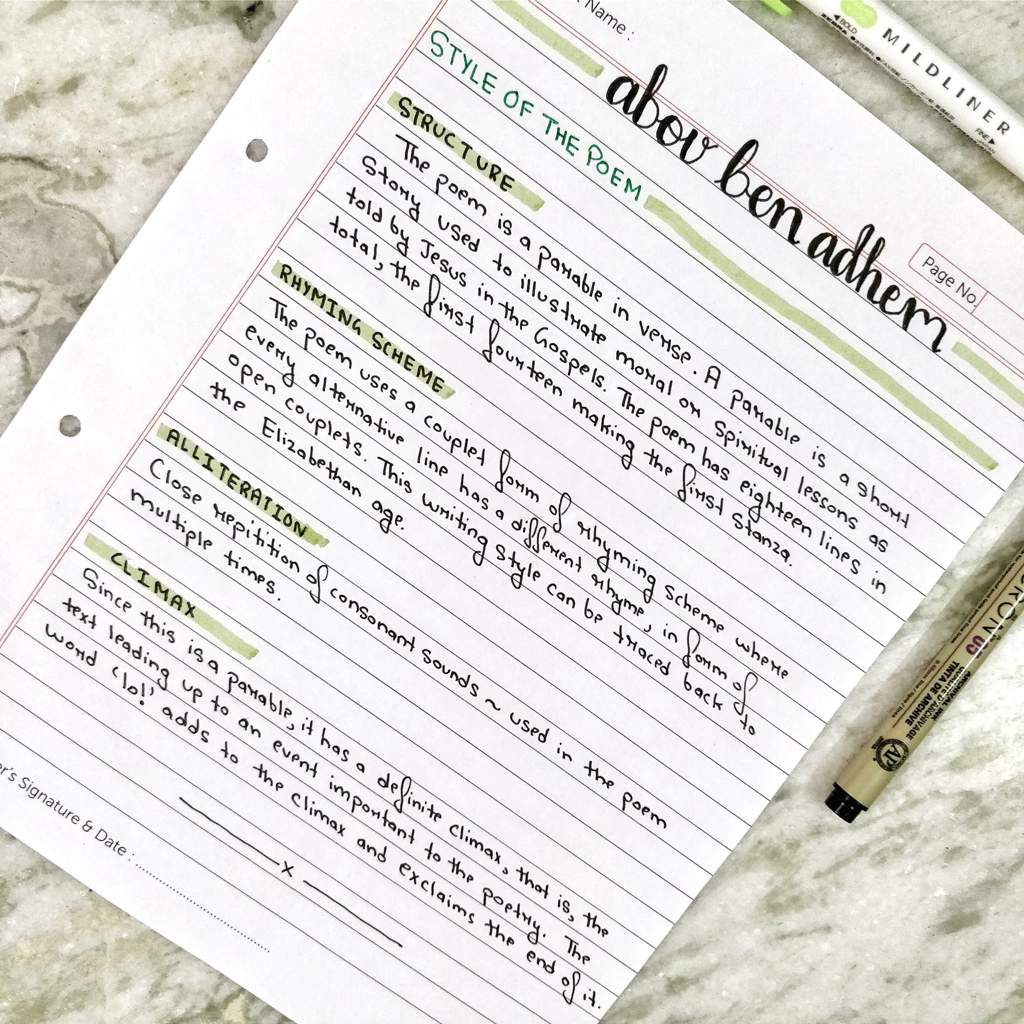 Name :
abov ben adhem
Page No.
STYLE OF THE POEM
STRUCTURE
The poem is a parable in verse. A parable is a short
Story used to illustrate moral or Spiritual lessons as
told by Jesus in the Gospels. The poem has eighteen lines in
total, the first fourteen making the first Stanza.
RHYMING SCHEME
The poem uses a couplet form of rhyming scheme where
every alternative line has a different rhyme, in form of
open couplets. This writing style can be traced back to
the Elizabethan age.
ALLITERATION
Close repitition of consonant sounds ~ used in the poem
multiple times.
CLIMAX
Since this is a parable, it has a definite climax, that is, the
text leading up to an event important to the poetry. The
word 'lo!' adds to the climax and exclaims the end of it.
x
er's Signature & Date :
MILDLINER
BOLD
FINE
ZEBRA
RON 05
ARCHIVAL INK
TINTA DE ARCHIVE
AP